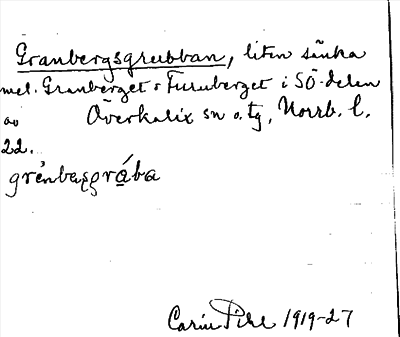 Granbergsgrubban, liten sänka
mel. Granberget o Furuberget i SÖ-delen
av Överkalix sn o. tg, Norrb. l.
22.
grénbæsgrába
Carin Pihl 1919-27